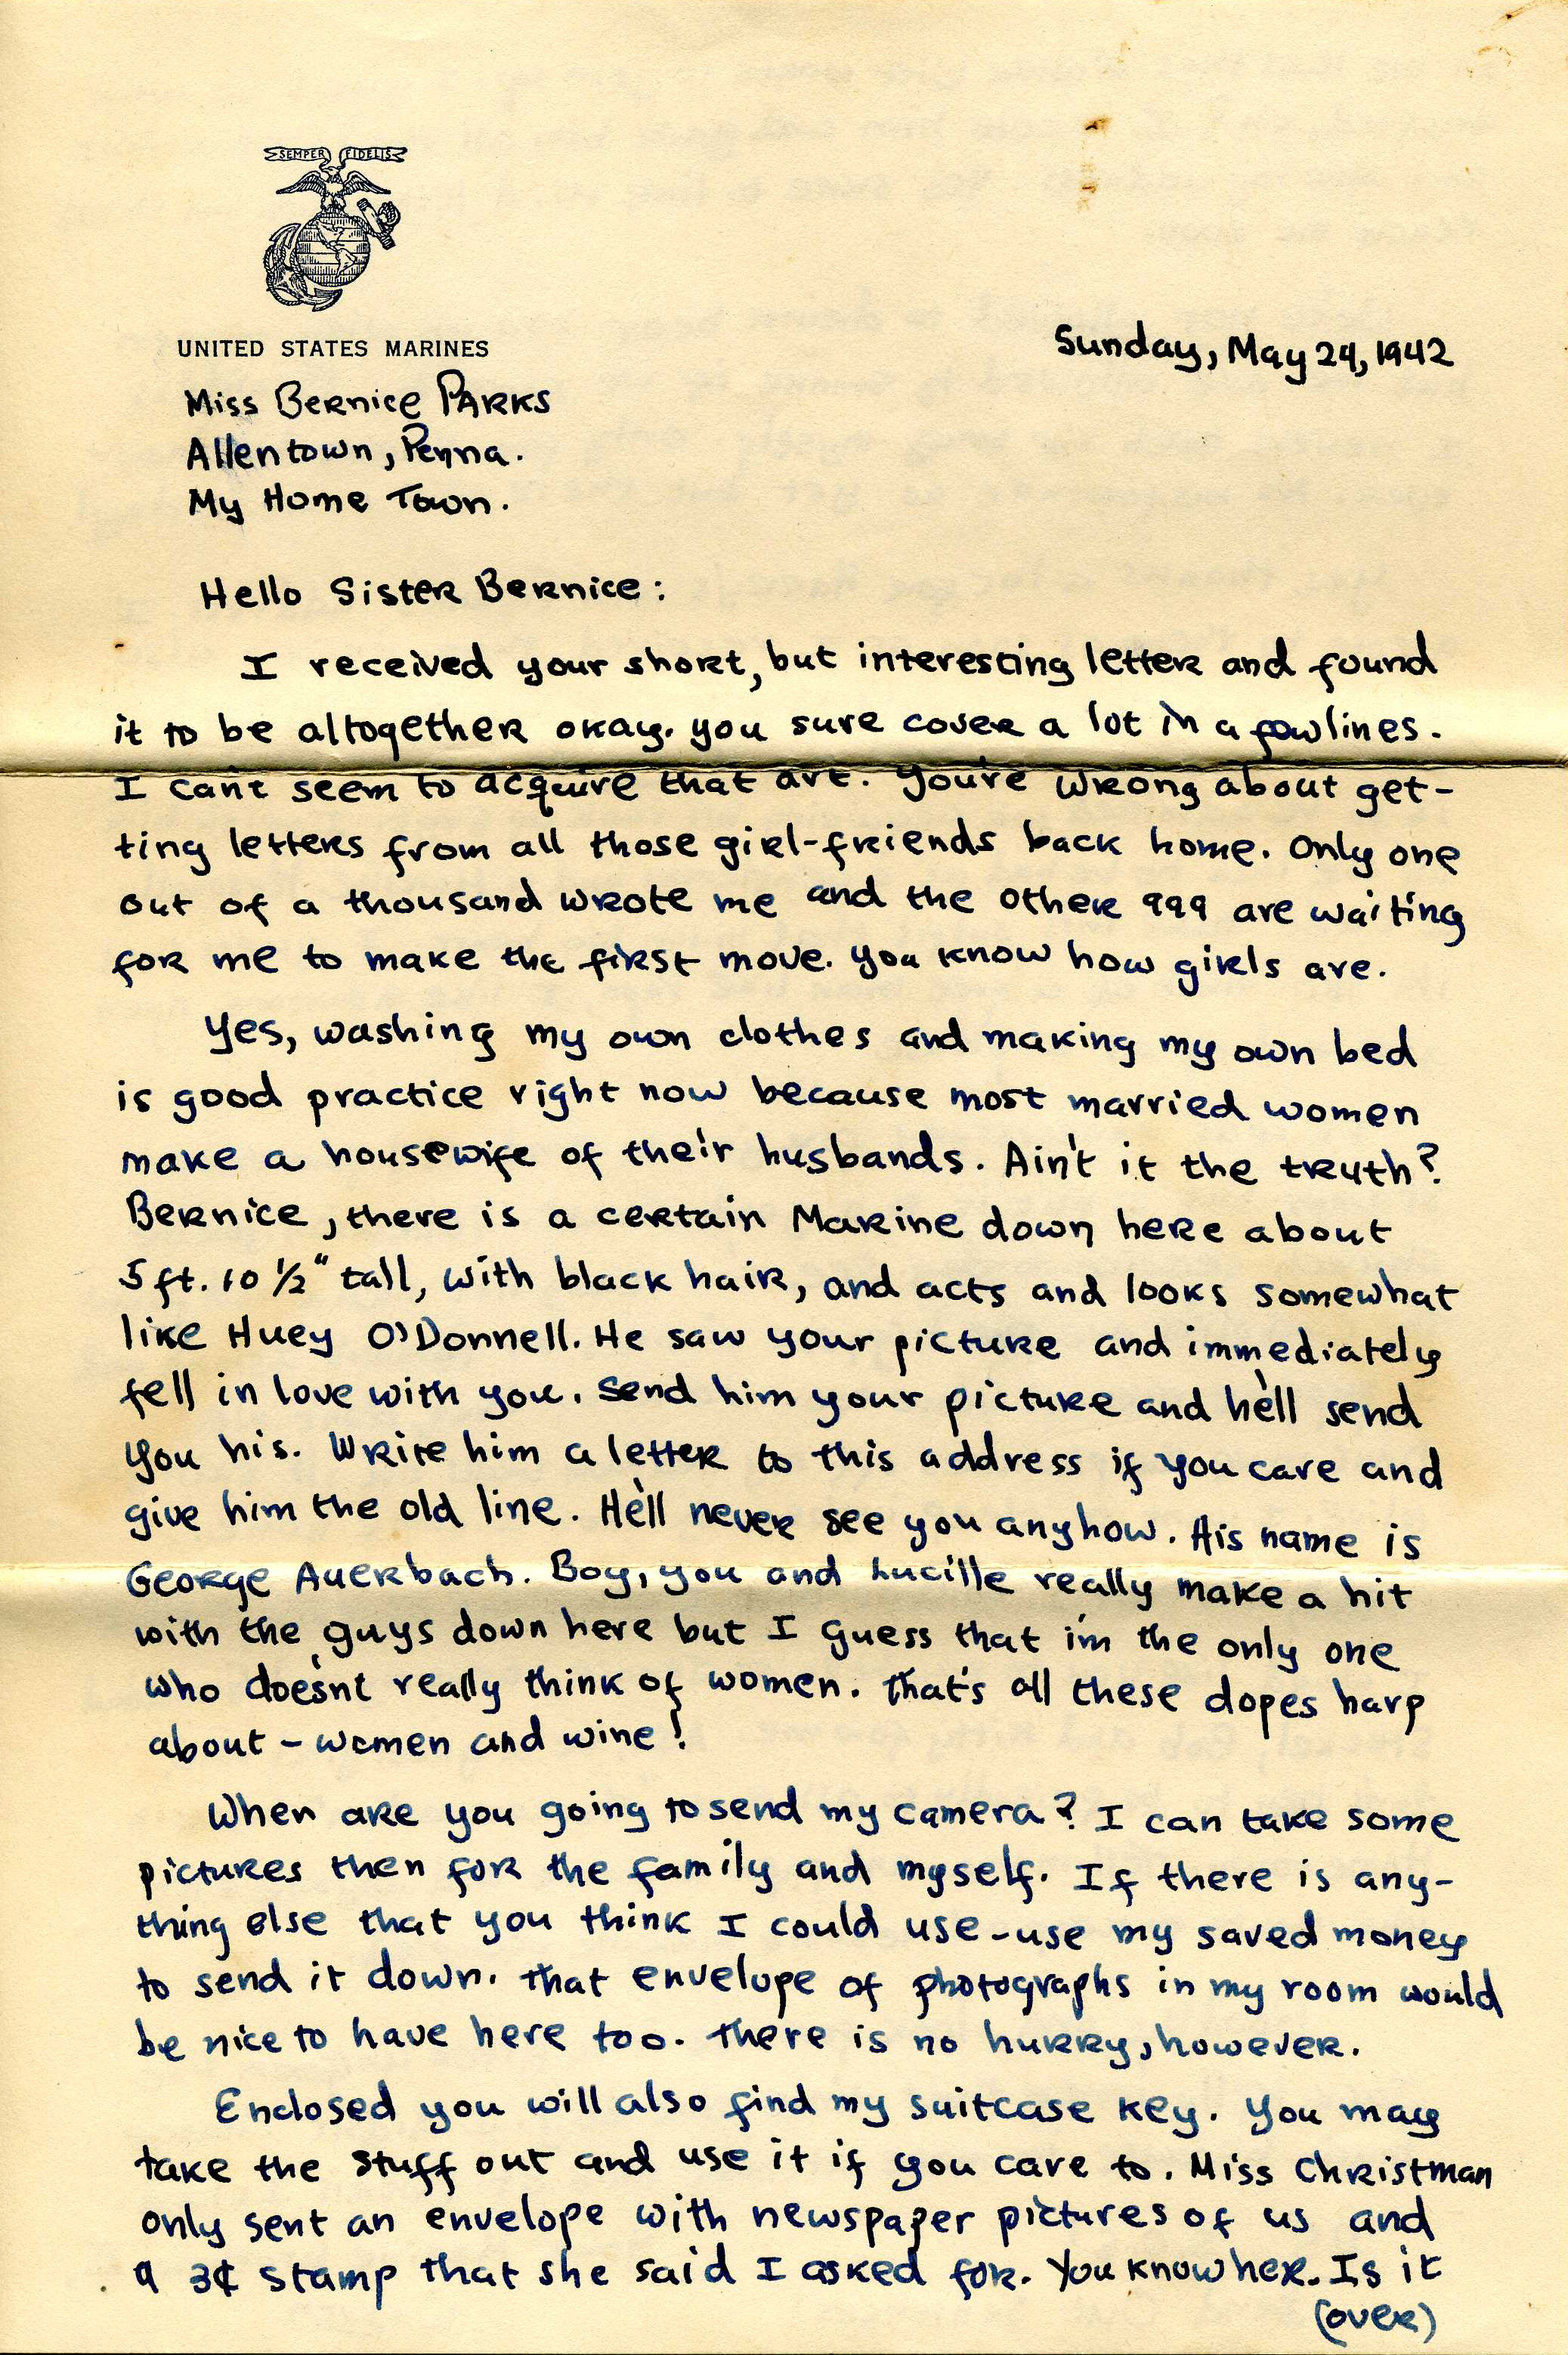 SEMPER FIDELIS
UNITED STATES MARINES
Sunday, May 24, 1942
Miss Bernice PARKS
Allentown, Penna.
My Home Town.
Hello Sister Bernice:
I received your short, but interesting letter and found
it to be altogether okay. you sure cover a lot in a few lines.
I can't seem to acquire that art. You're wrong about get-
ting letters from all those girl-friends back home. Only one
out of a thousand wrote me and the other 999 are waiting
for me to make the first move. You know how girls are.
Yes, washing my own clothes and making my own bed
is good practice right now because most married women
make a housewife of their husbands. Ain't it the truth?
Bernice, there is a certain Marine down here about
5 ft. 10 ½" tall, with black hair, and acts and looks somewhat
like Huey O'Donnell. He saw your picture and immediately
fell in love with you. Send him your picture and he'll send
you his. Write him a letter to this address if you care and
give him the old line. He'll never see you anyhow. His name is
George Auerbach. Boy, you and Lucille really make a hit
with the guys down here but I guess that i'm the only one
who does'nt really think of women. That's all these dopes harp
about - women and wine!
When are you going to send my camera? I can take some
pictures then for the family and myself. If there is any-
thing else that you think I could use - use my saved money
to send it down. That envelope of photographs in my room would
be nice to have here too. There is no hurry, however.
Enclosed you will also find my suitcase key. You may
take the stuff out and use it if you care to. Miss Christman
only sent an envelope with newspaper pictures of us and
a 3¢ stamp that she said I asked for. You know her. Is it
(over)